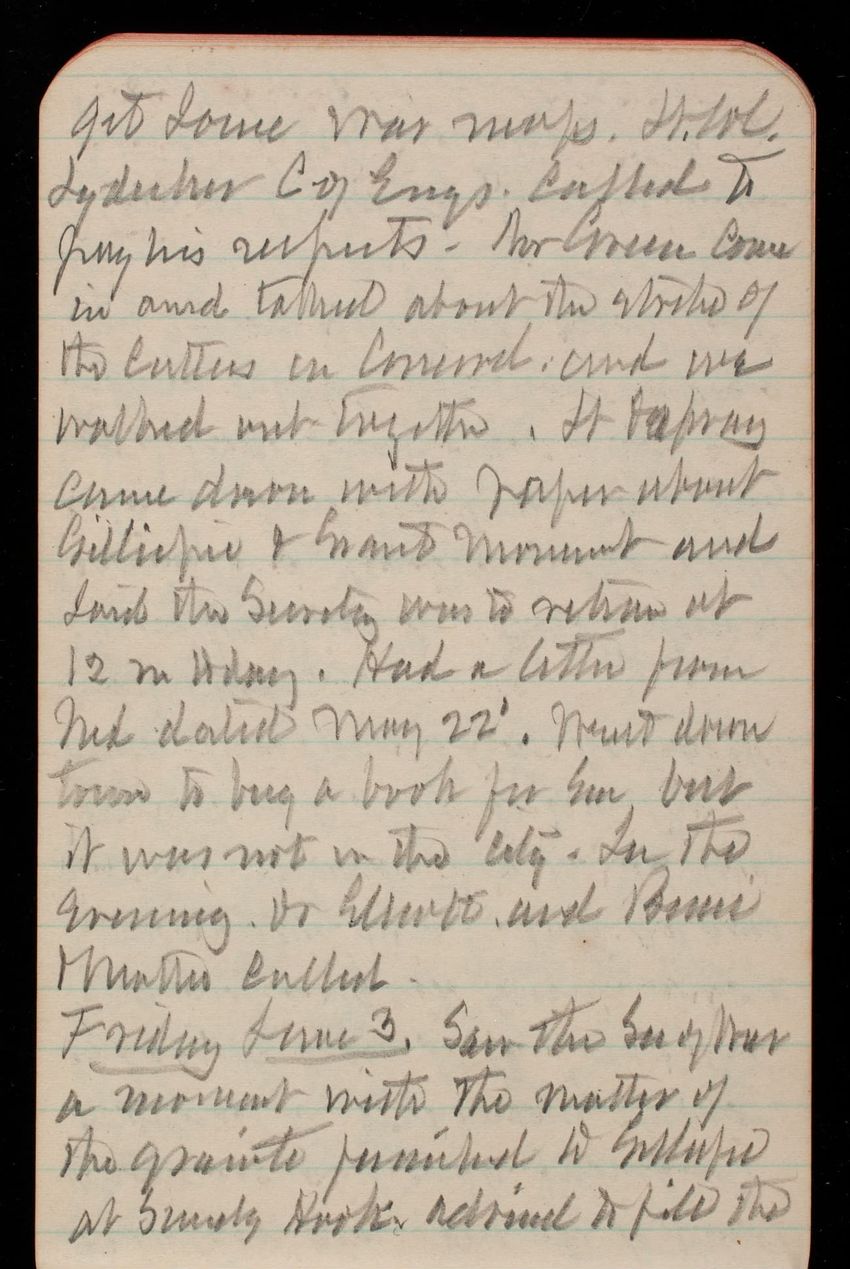 get some war maps. Lt. Col.
Lydecker C of Engs. called to
pay his respects - Mr Green came
in and talked about the strike of
the Cutters in Concord. and we
walked out together. Lt
came down with paper about
Gillispie & Grant Monument and
said the Secretary was to return at
12 m today. Had a letter from
Ned dated May 22'. Went down
town to buy a book for but
it was not in the city - In the
evening. Dr Elliott. and
Mattie called.
Friday June 3. Saw the Sec of War
a moment with the matter of
the granite furnished to Gillispie
at Sandy Hook. advised to file the